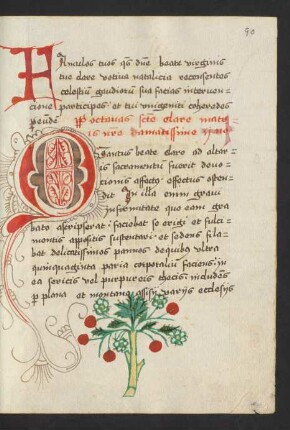 90
Famulos tuos qs dne beate virginis
tue clare votiva natalicia recensentes
celestiu gaudioru sua facias interven-
cione participes et tui unigeniti coheredes
P octavas scte clare
Quantus beate clare ad altar-
is sacramentu fuerit devo-
tionis effectus effectus osten-
dit In illa enim gravi
infirmitate que eam gra-
bato asscripserat faciebat se erigi et fulci-
mentis appositis sustentari et sedens fila-
bat delicatissimos pannos de quibus ultra
quinquaginta paria corporaliu faciens in
ea sericis vel purpureis thecis includens
p plana et montana assisii varijs ecclesijs